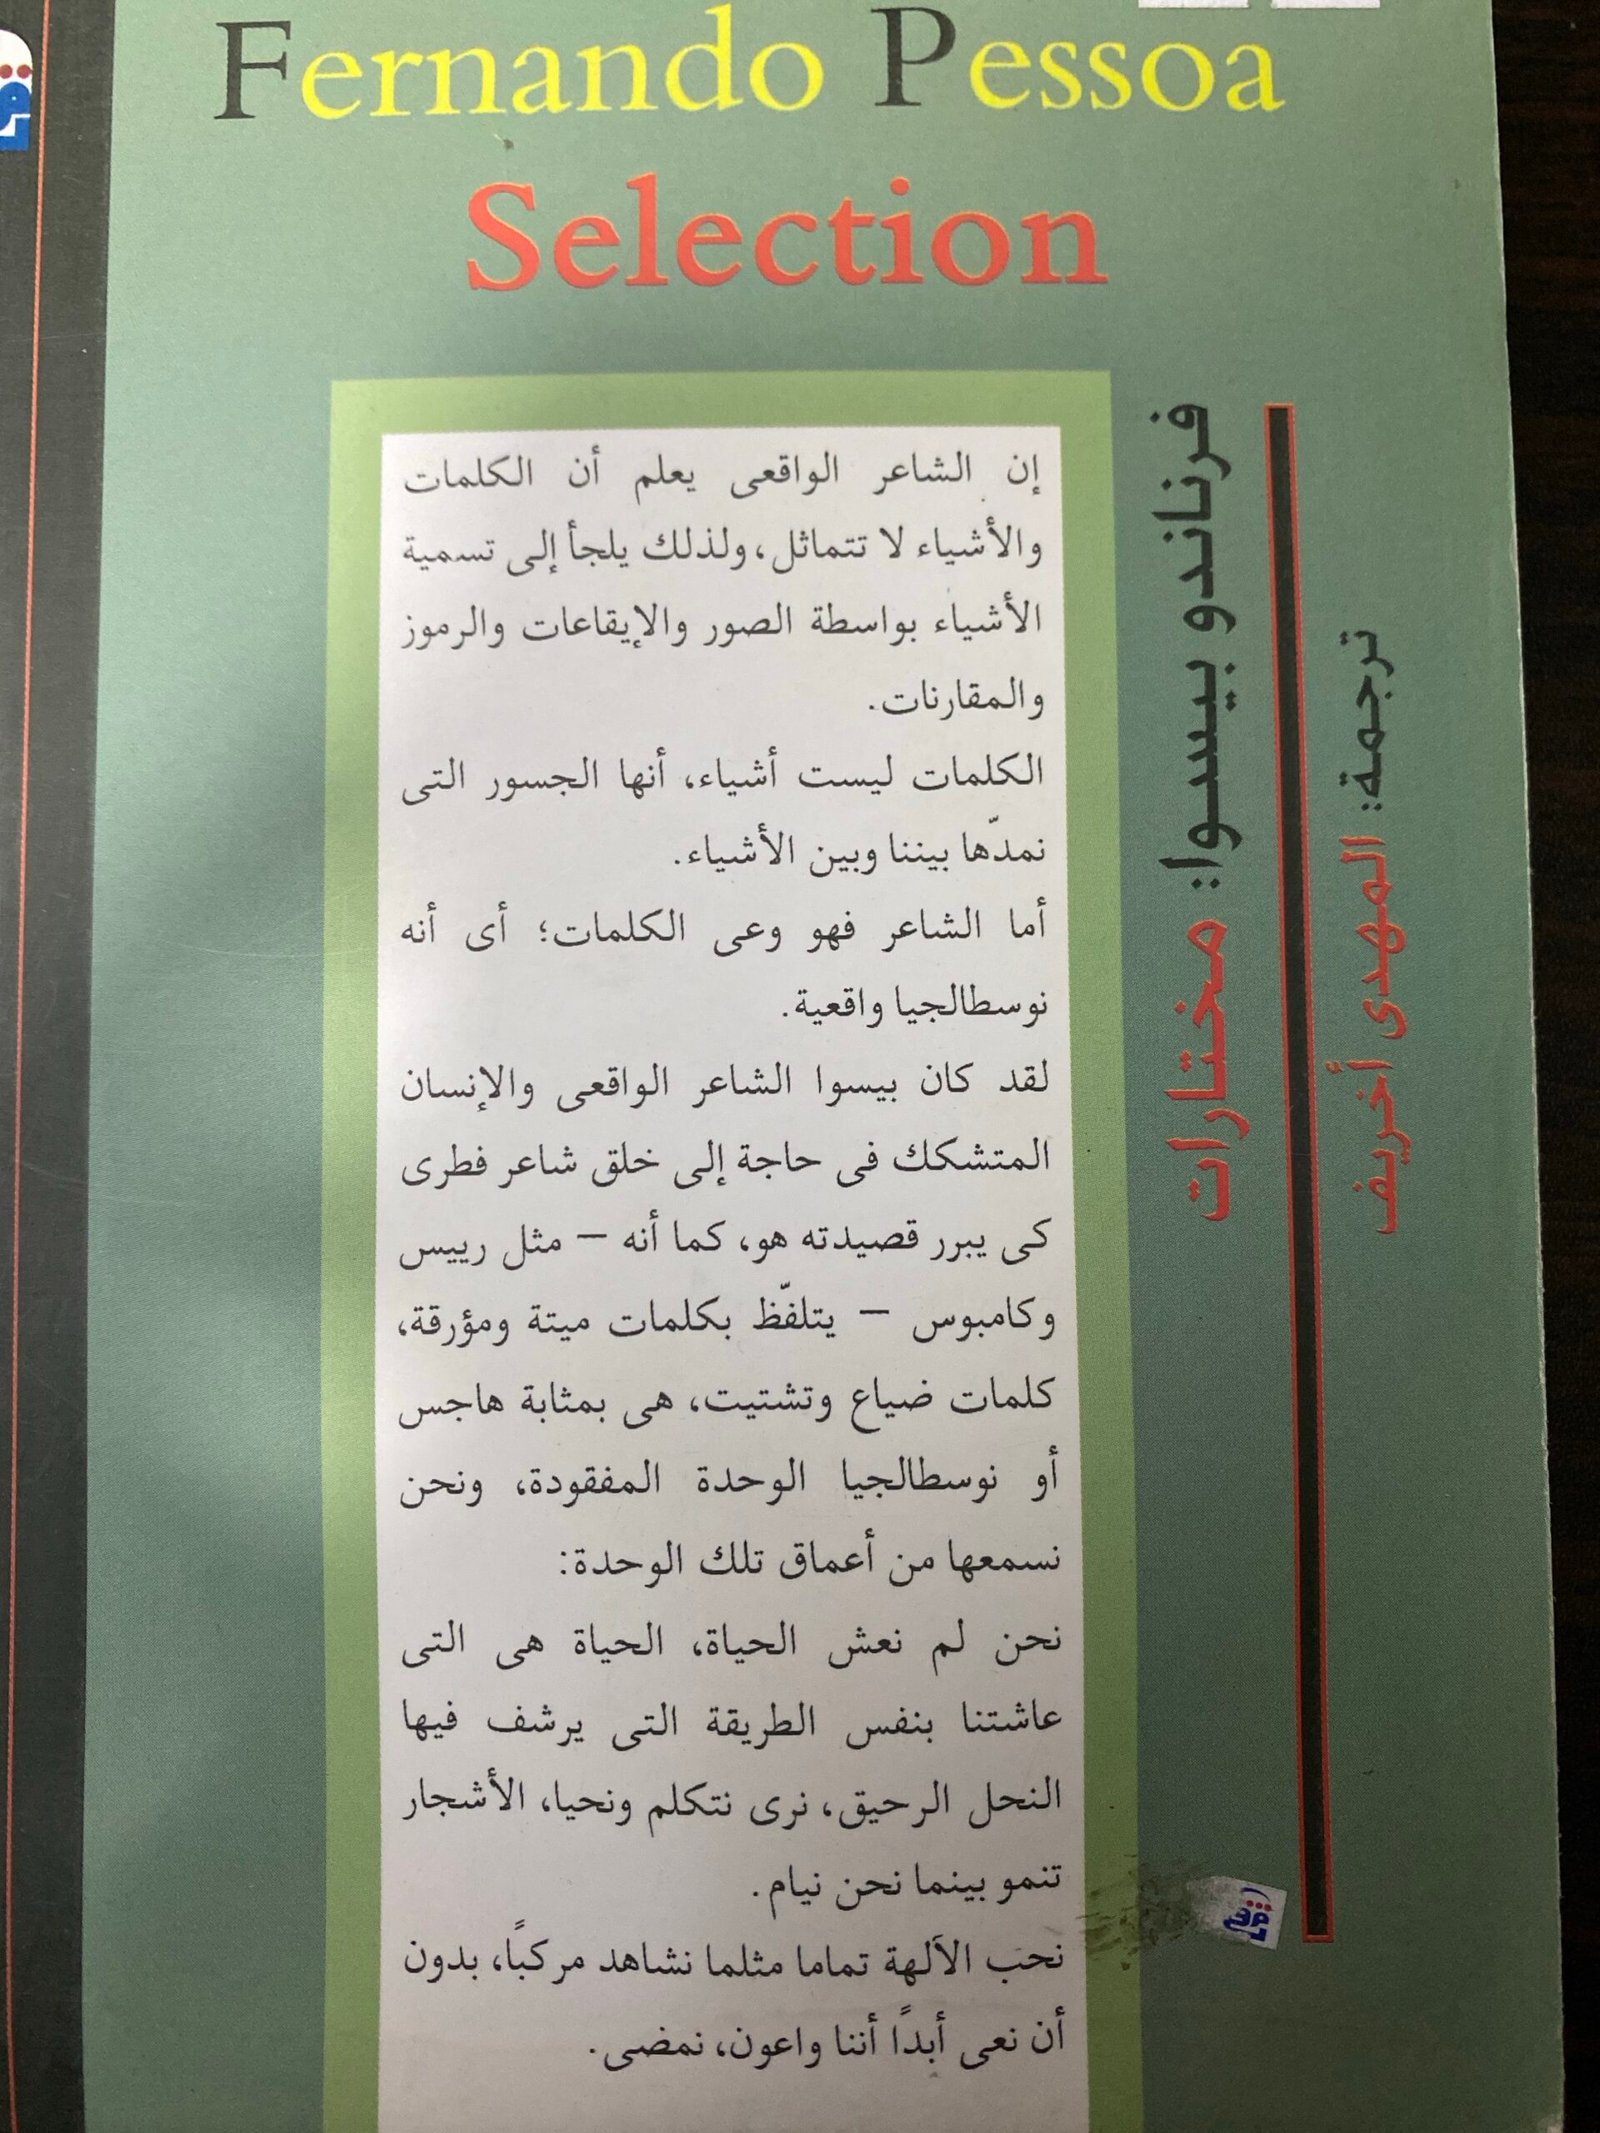 Fernando Pessoa
Selection
إن الشاعر الواقعى يعلم أن الكلمات
والأشياء لا تتماثل، ولذلك يلجأ إلى تسمية
الأشياء بواسطة الصور والإيقاعات والرموز
والمقارنات.
الكلمات ليست أشياء، أنها الجسور التى
نمدّها بيننا وبين الأشياء.
أما الشاعر فهو وعى الكلمات؛ أى أنه
نوسطالجيا واقعية.
لقد كان بيسوا الشاعر الواقعى والإنسان
المتشكك فى حاجة إلى خلق شاعر فطرى
كى يبرر قصيدته هو، كما أنه – مثل رييس
وكامبوس – يتلفّظ بكلمات ميتة ومؤرقة،
كلمات ضياع وتشتيت، هى بمثابة هاجس
أو نوسطالجيا الوحدة المفقودة، ونحن
نسمعها من أعماق تلك الوحدة:
نحن لم نعش الحياة، الحياة هى التى
عاشتنا بنفس الطريقة التى يرشف فيها
النحل الرحيق، نرى نتكلم ونحيا، الأشجار
تنمو بينما نحن نيام.
نحب الآلهة تماما مثلما نشاهد مركباً، بدون
أن نعى أبداً أننا واعون، نمضى.
فرناندو بيسوا: مختارات
ترجمة: المهدى أخريف